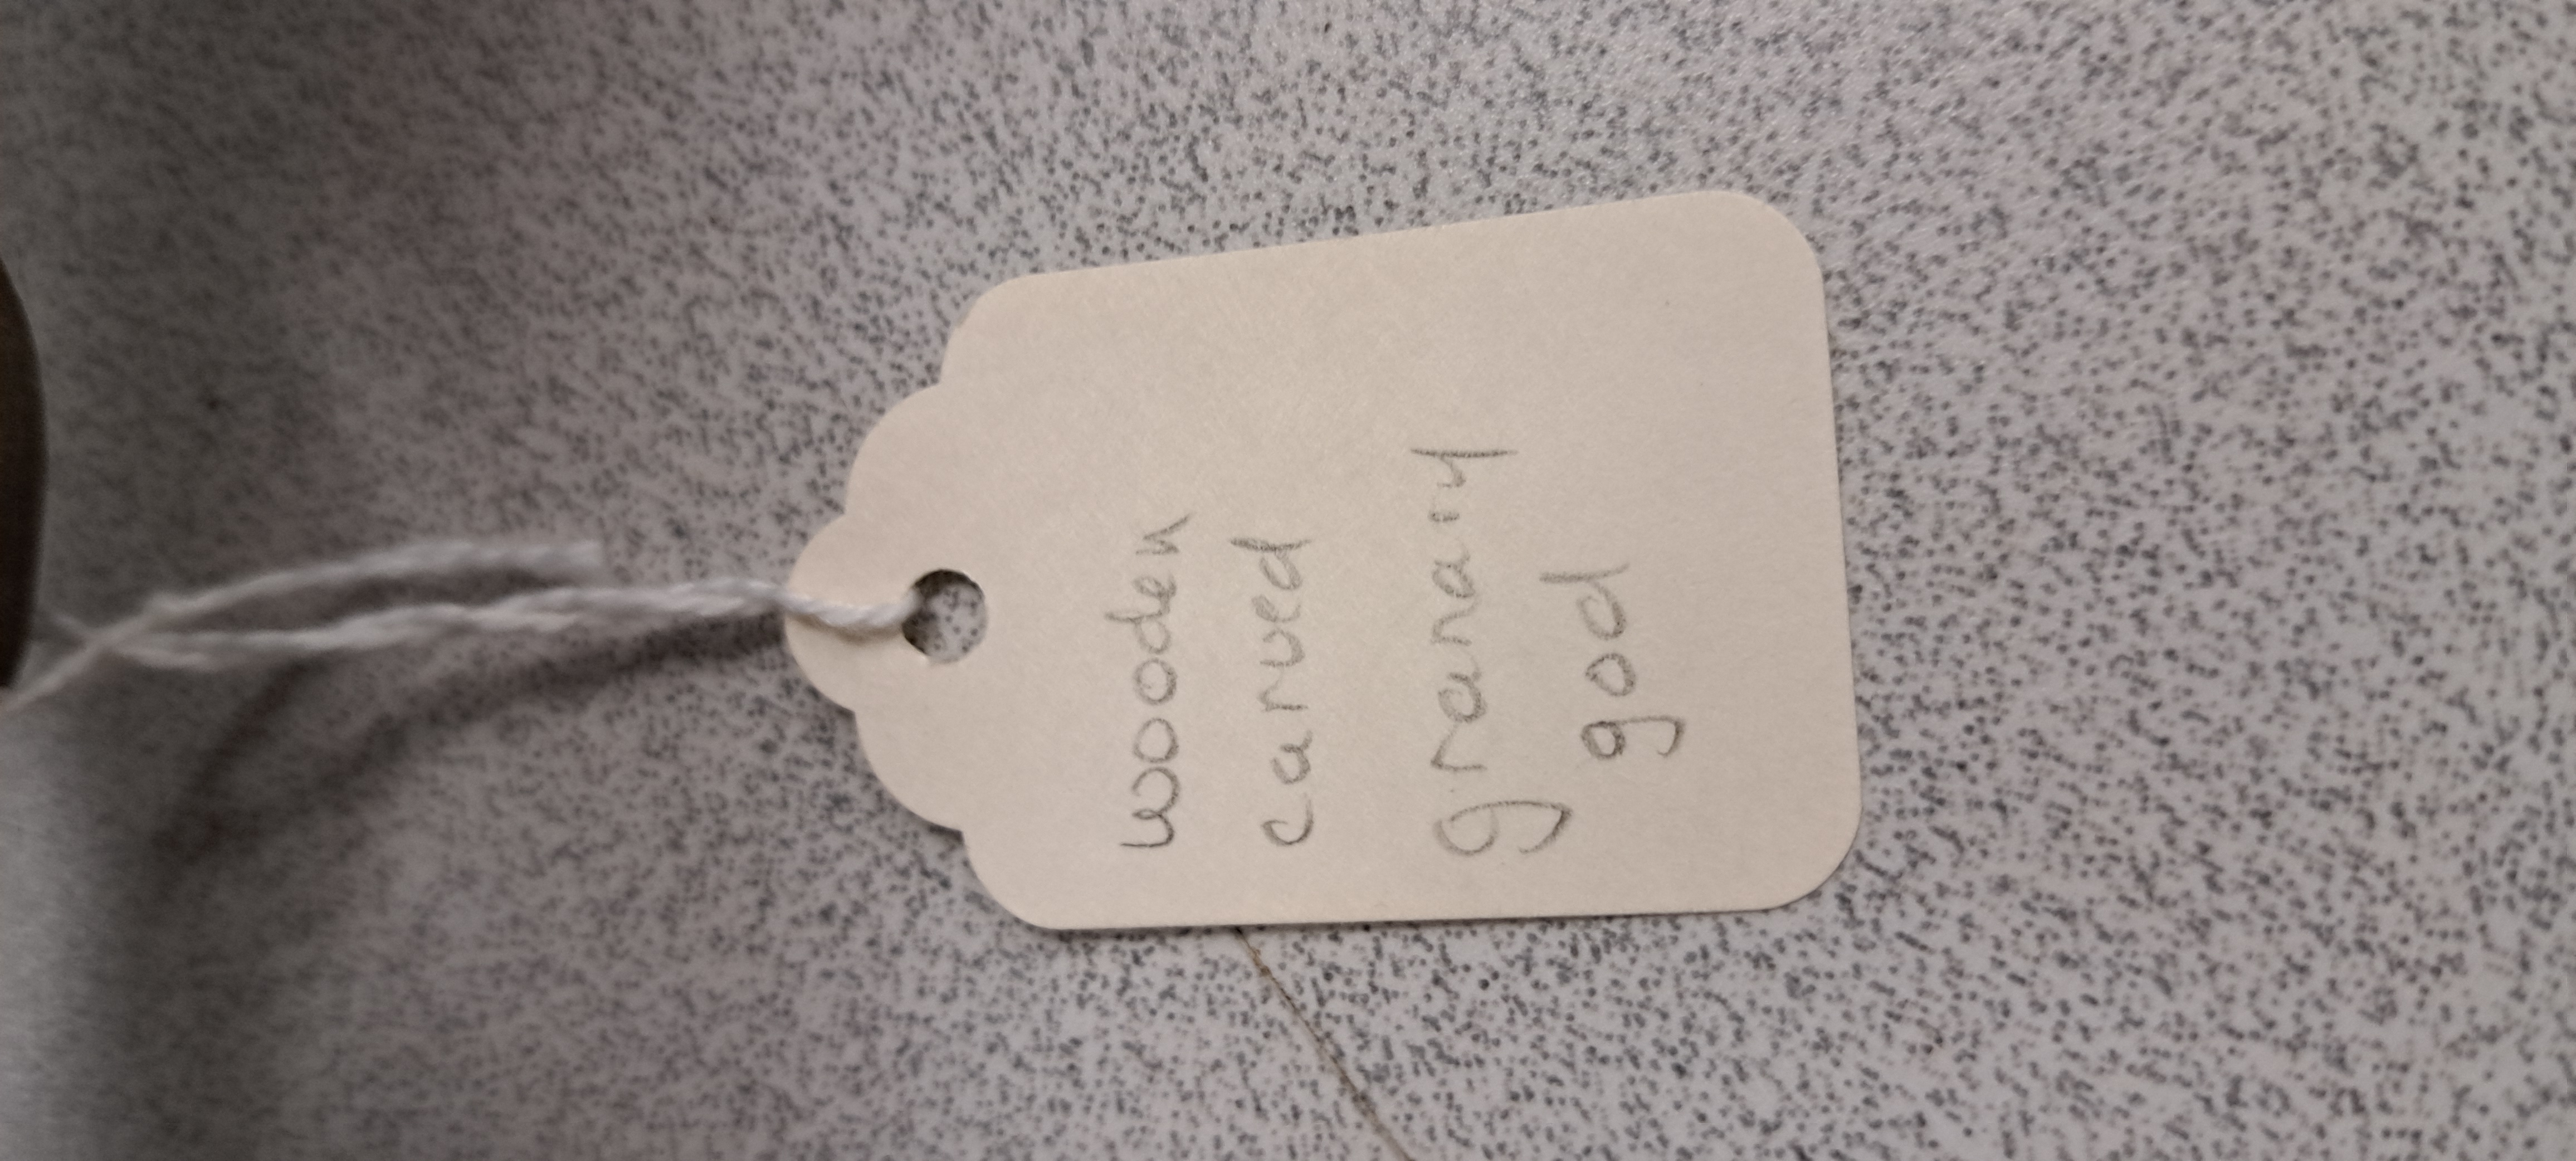 wooden
carved
granary
god